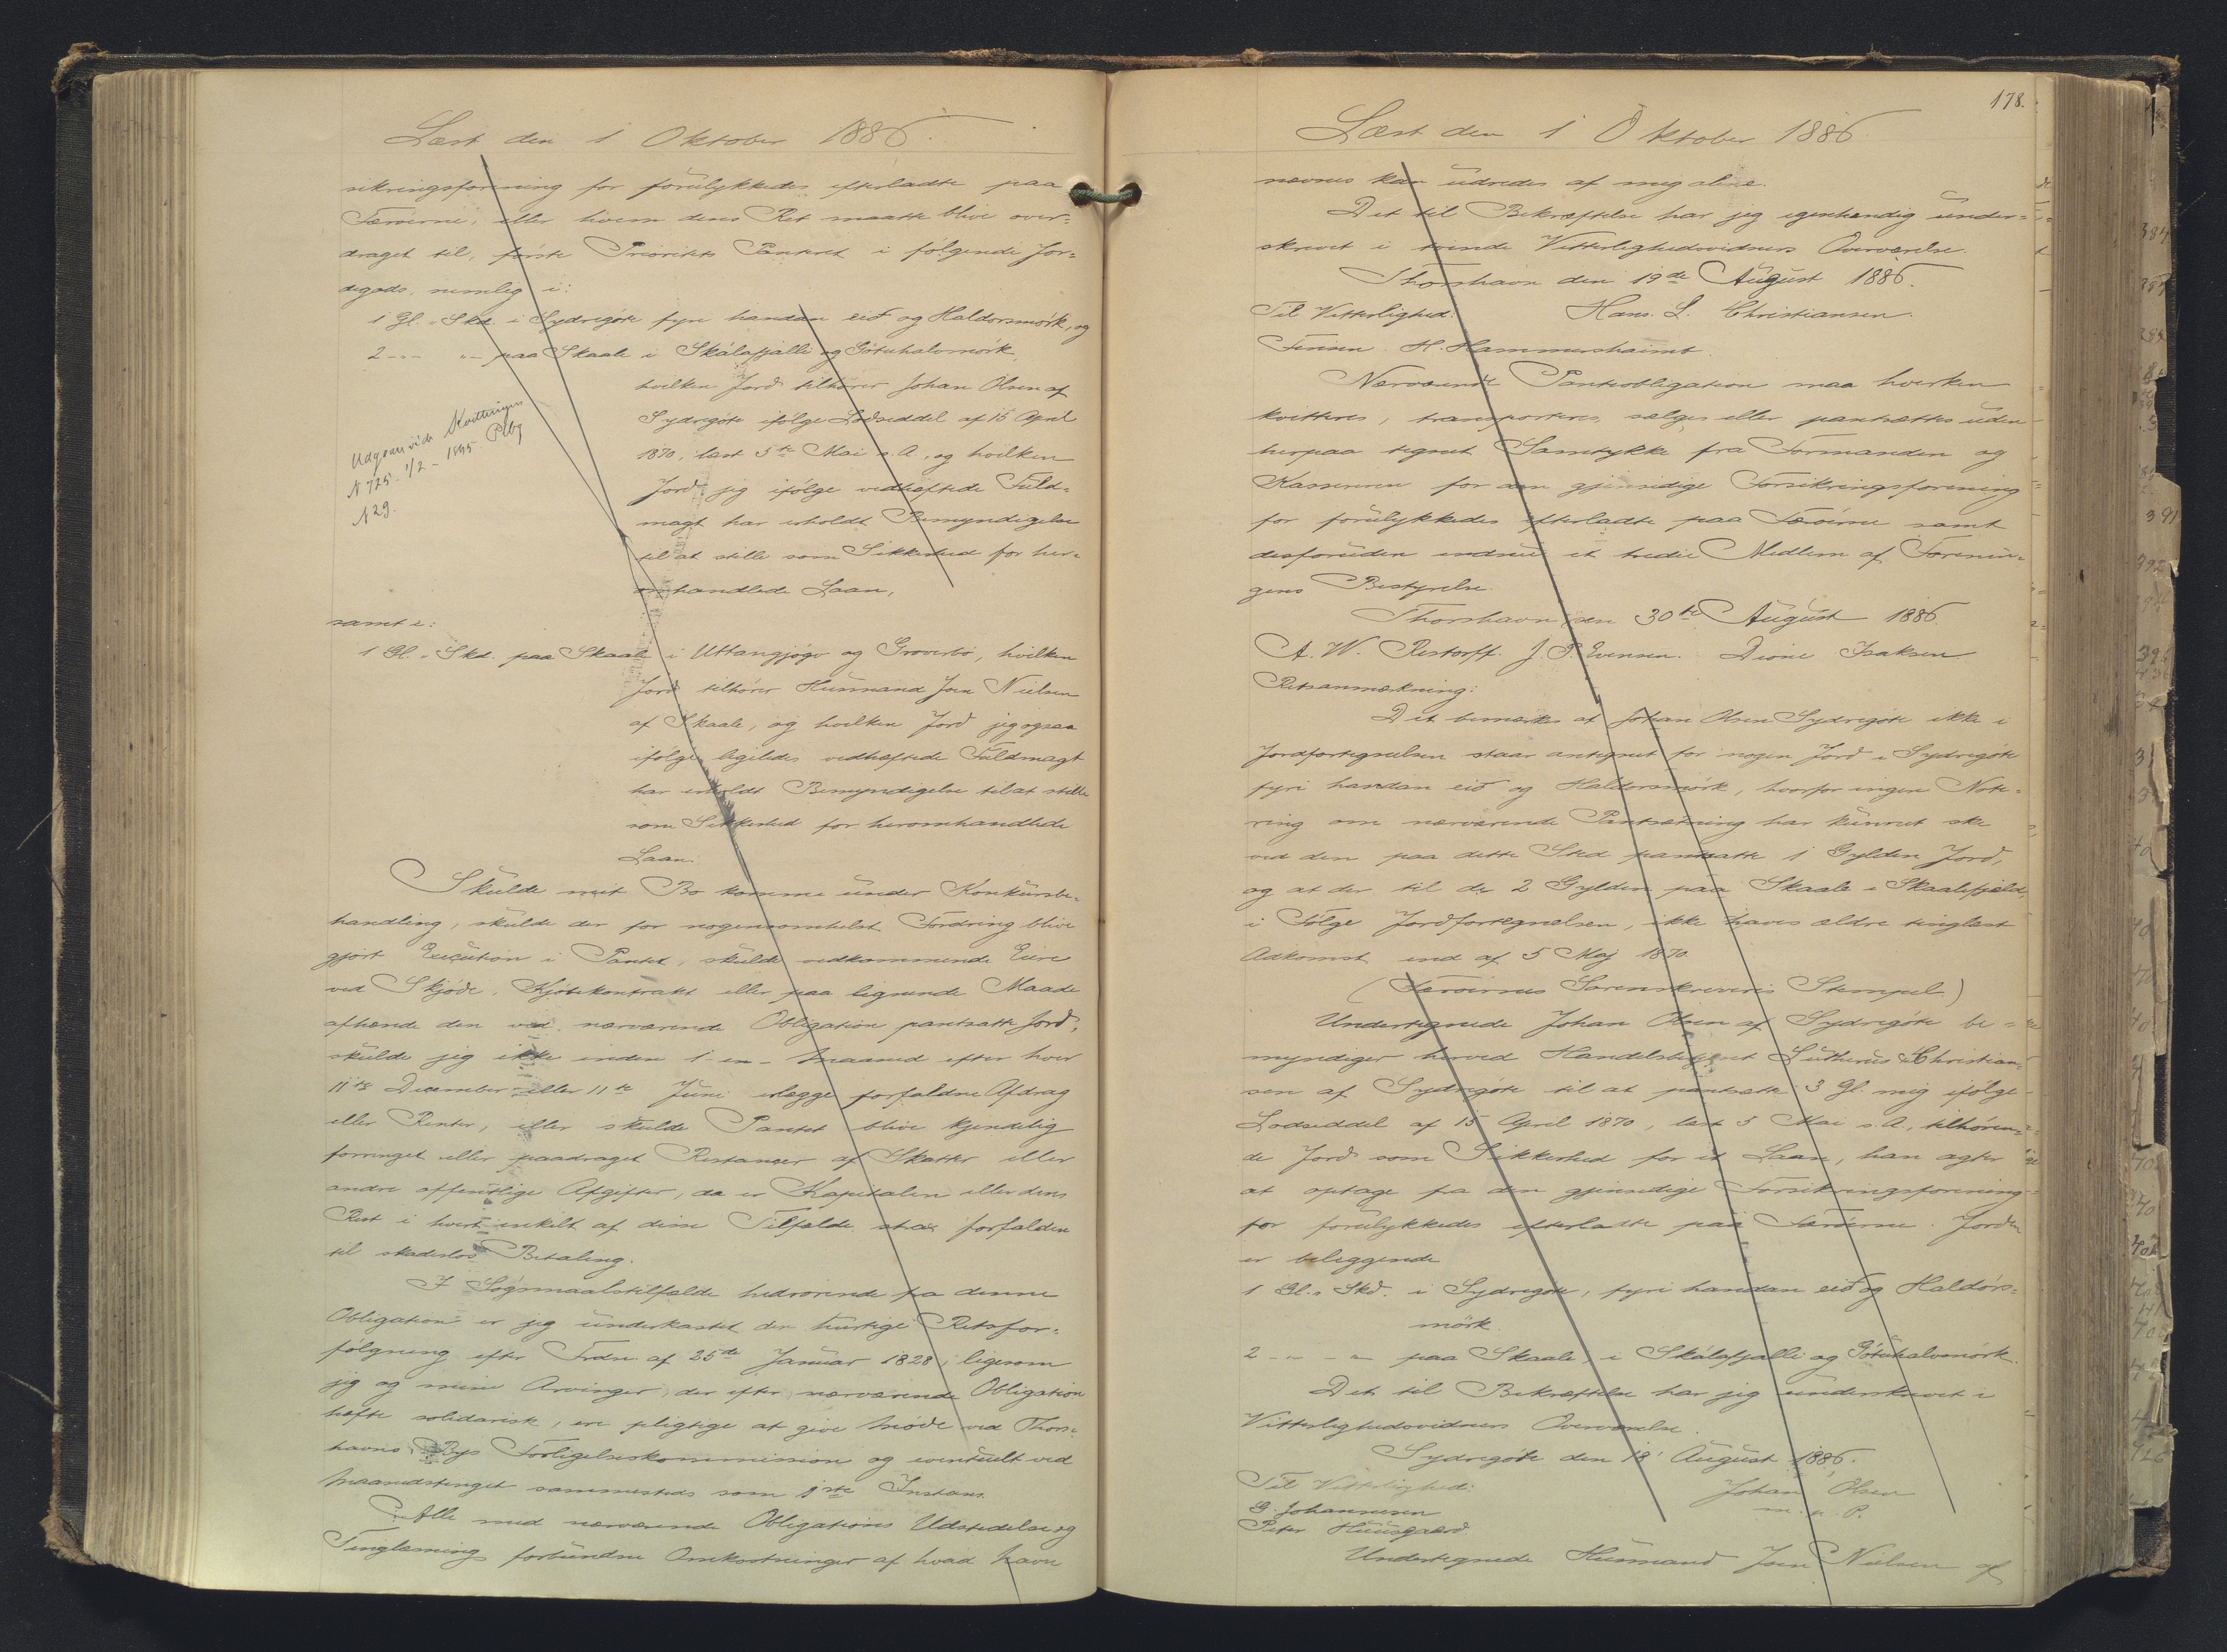 Læst den 1 Oktober 1886.
sikringsforening for forulykkedes efterladte paa
Færøerne, eller hvem dens Ret maatte blive over=
draget til, første Prioritets Panteret i følgende Jor=
degods, nemlig i:
1 Gl. Skd. i Sydregöte fyri handan eið og Haldorsmörk, og
2 -"- "- paa Skaale i Skálafjalli og Götuhalvmörk,
hvilken Jord tilhører Johan Olsen af
Sydregöte ifølge Lodseddel af 15 April
1870, læst 5te Mai s. A., og hvilken
Jord jeg ifølge vedhæftede Fuld=
magt har erholdt Bemyndigelse
til at stille som Sikkerhed for her=
omhandlede Laan,
Udgaar vide Kvitteringen
N 725 - 1/2 - 1895 Pbg
N 29.
samt i:
1 Gl. Skd. paa Skaale i Uttangjógv og Groverbø, hvilken
Jord tilhører Husmand Joen Nielsen
af Skaale, og hvilken Jord jeg ogsaa
ifølge ligeledes vedhæftede Fuldmagt
har erholdt Bemyndigelse til at stille
som Sikkerhed for heromhandlede
Laan.
Skulde mit Bo komme under Konkursbe=
handling, skulde der for nogensomhelst Fordring blive
gjort Execution i Pantet, skulde vedkommende Eiere
ved Skjöde, Kjöbekontrakt eller paa lignende Maade
afhænde den ved nærværende Obligation pantsatte Jord,
skulde jeg ikke inden 1 - en - Maaned efter hver
11te December eller 11te Juni erlægge forfaldne Afdrag
eller Renter, eller skulde Pantet blive kjendelig
forringet eller paadraget Restancer af Skatter eller
andre offentlige Afgifter, da er Kapitalen eller dens
Rest i hvert enkelt af disse Tilfælde strax forfalden
til skadeslös Betaling.
I Sögsmaalstilfælde hidrørende fra denne
Obligation er jeg underkastet den hurtige Retsfor=
følgning efter Frdn. af 25de Januar 1828, ligesom
jeg og mine Arvinger, der efter nærværende Obligation
hæfte solidarisk, ere pligtige at give Møde ved Thors=
havns Bys Forligelseskommission og eventuelt ved
Maanedstinget sammesteds som 1ste Instans.
Alle med nærværende Obligations Udstedelse og
Tinglæsning forbundne Omkostninger af hvad Navn
178.
Læst den 1 Oktober 1886
nævnes kan udredes af mig alene.
Det til Bekræftelse har jeg egenhændig under=
skrevet i tvende Vitterlighedsvidners Overværelse.
Thorshavn den 19de August 1886.
Til Vitterlighed: Hans L. Christiansen.
Jensen H. Hammershaimb.
Nærværende Panteobligation maa hverken
kvitteres, transporteres, sælges eller pantsættes uden
herpaa tegnet Samtykke fra Formanden og
Kassereren for den gjensidige Forsikringsforening
for forulykkedes efterladte paa Færøerne samt
desforuden endnu et tredie Medlem af Forenin=
gens Bestyrelse.
Thorshavn den 30te August 1886.
A. W. Restorff. J. P. Evensen. Dione Isaksen.
Retsanmærkning:
Det bemærkes at Johan Olsen Sydregöte ikke i
Jordfortegnelsen staar antegnet for nogen Jord i Sydregöte
fyri handan eið og Haldorsmörk, hvorfor ingen Note=
ring om nærværende Pantsætning har kunnet ske
ved den paa dette Sted pantsatte 1 Gylden Jord,
og at der til de 2 Gylden paa Skaale i Skaalefjeld,
i Følge Jordfortegnelsen, ikke haves ældre tinglæst
Adkomst end af 5 Maj 1870
(Færøernes Sorenskriveris Stempel)
Undertegnede Johan Olsen af Sydregöte be=
myndiger herved Handelsbetjent Lutherus Christian=
sen af Sydregöte til at pantsætte 3 Gl. mig ifølge
Lodseddel af 15 April 1870, læst 5 Mai s. A., tilhøren=
de Jord som Sikkerhed for et Laan, han agter
at optage fra den gjensidige Forsikringsforening
for forulykkedes efterladte paa Færøerne. Jorden
er beliggende
1 Gl. Skd. i Sydregöte, fyri handan eið og Haldórs=
mörk.
2 -"- -"- paa Skaale, i Skálafjalli og Götuhalvmörk.
Det til Bekræftelse har jeg underskrevet i
Vitterlighedsvidners Overværelse.
Sydregöte den 18' August 1886.
Til Vitterlighed: Johan Olsen
G. Johannesen m. f. P.
Peter Huusgaard.
Undertegnede Husmand Joen Nielsen af